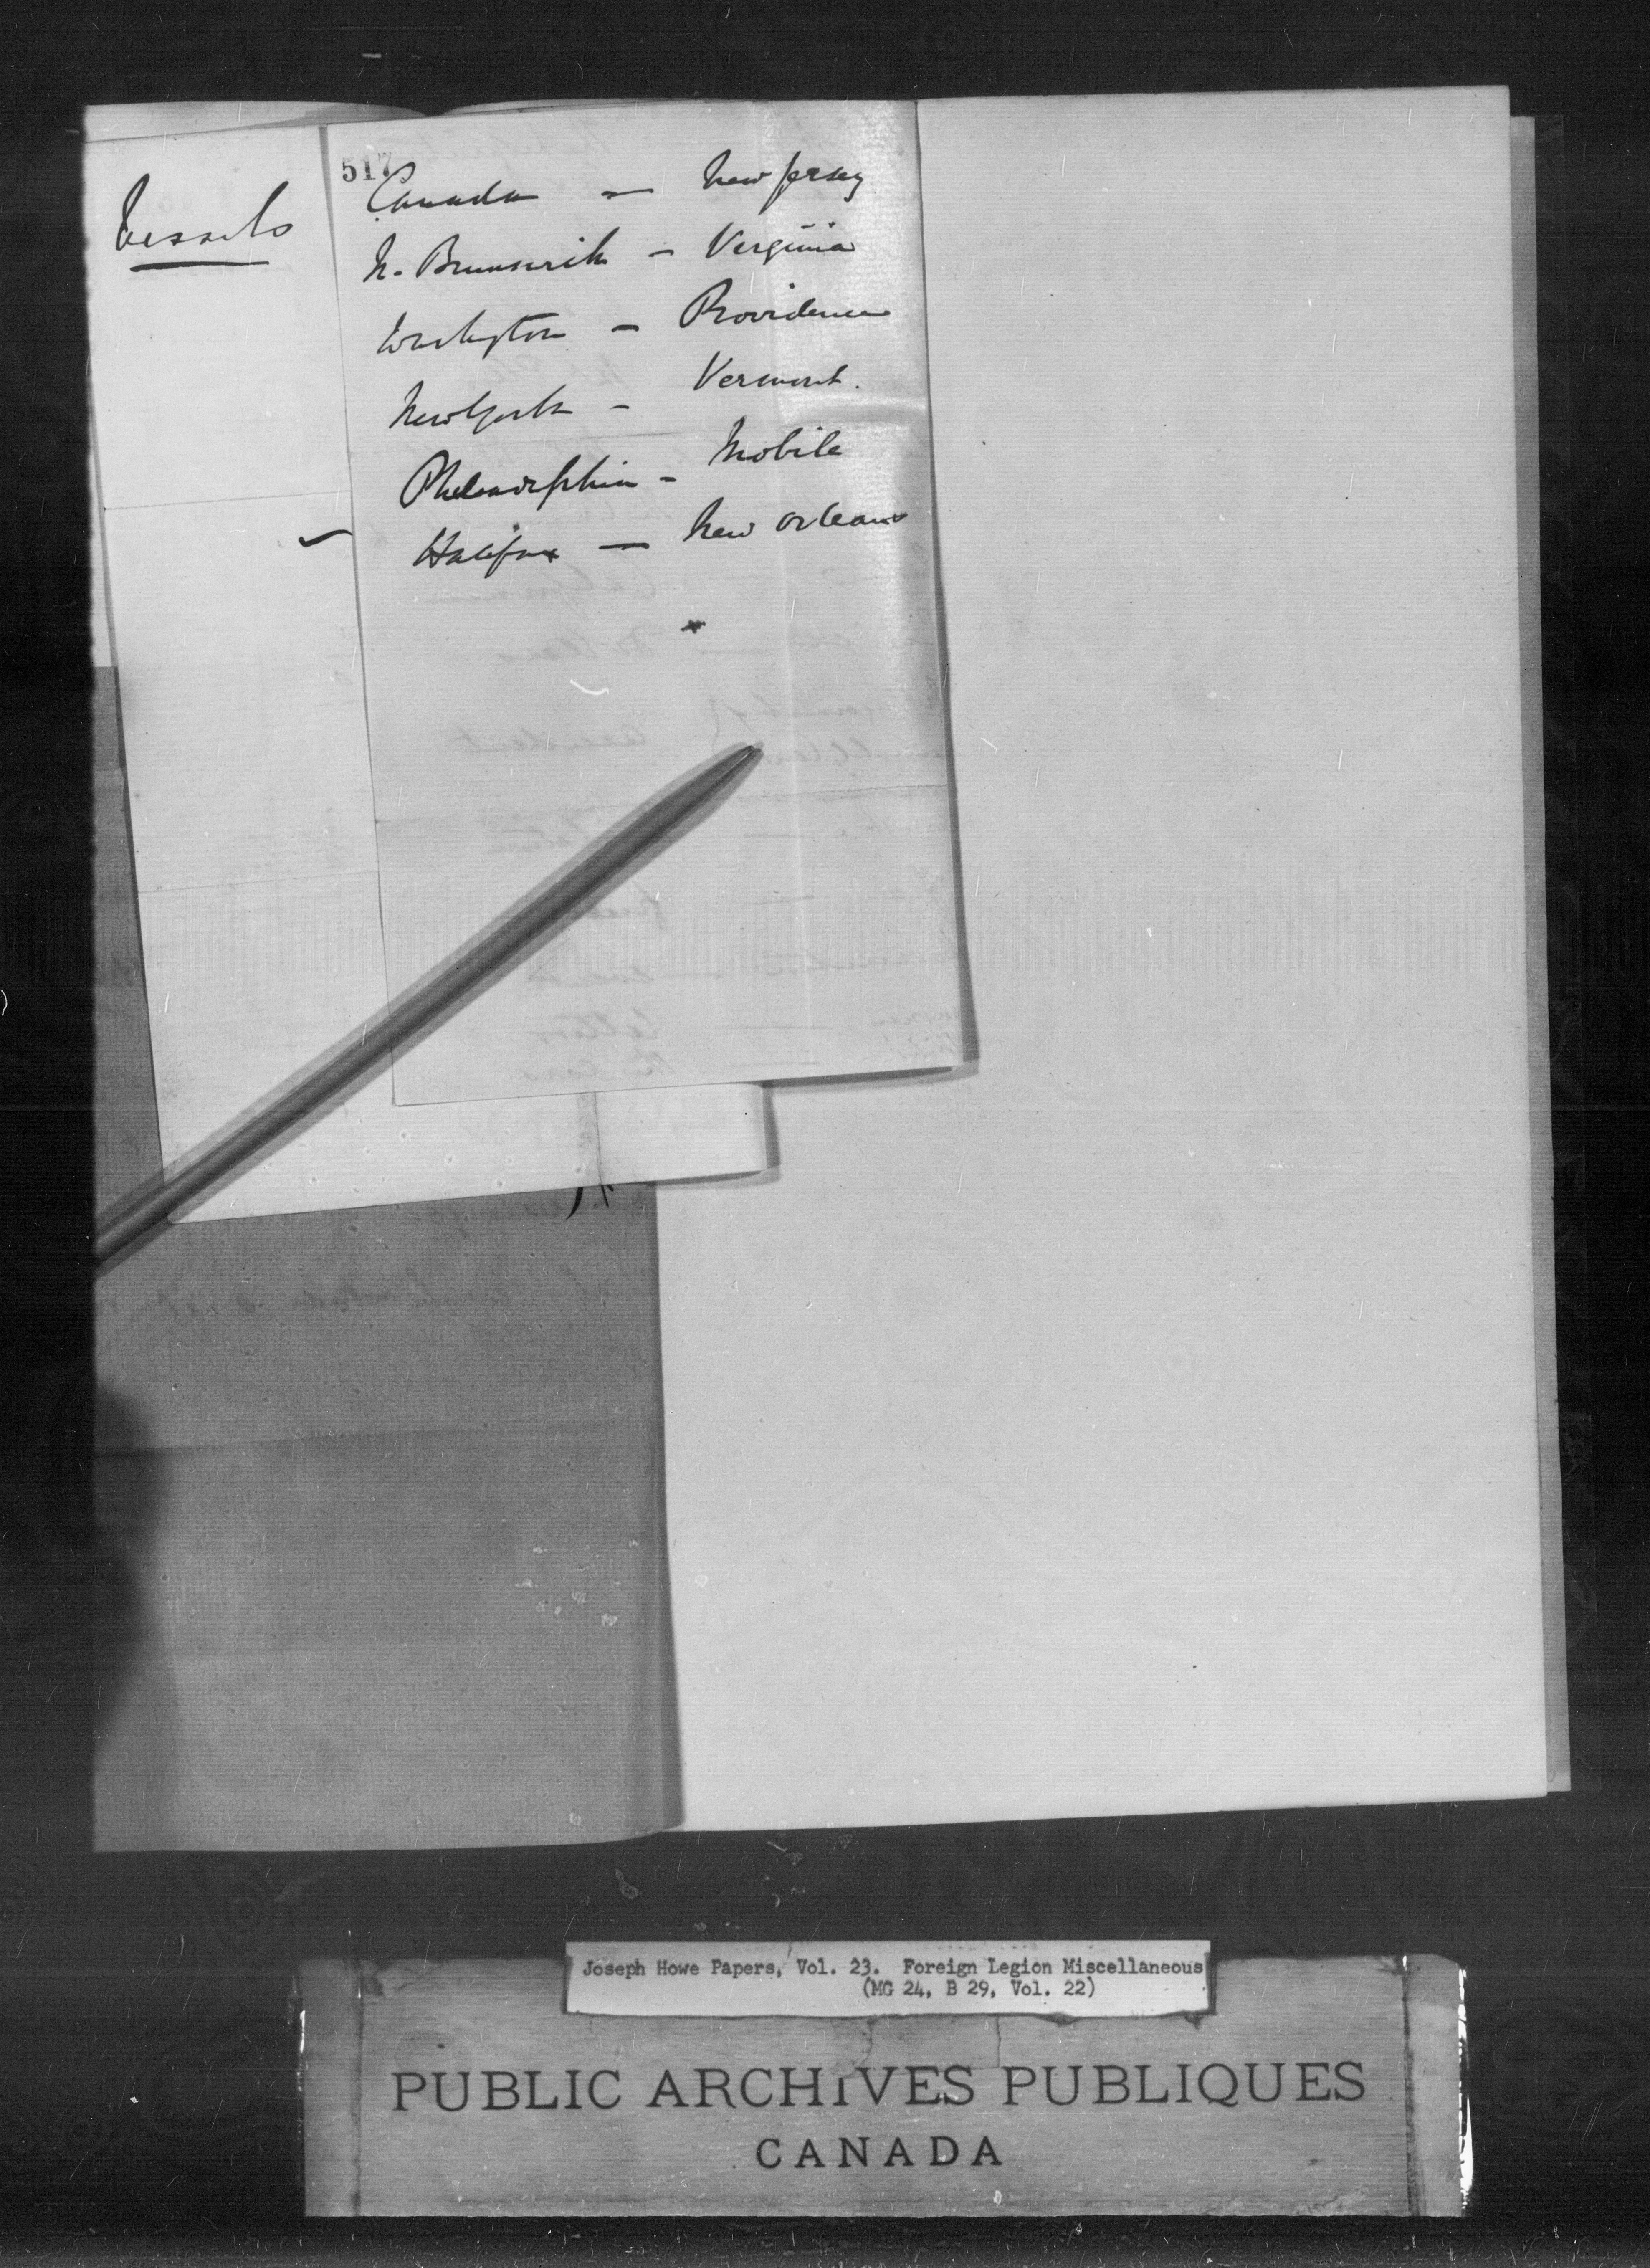 Vessels
517
Canada — New Jersey
N. Brunswick — Virginia
Washington — Providence
New York — Vermont.
Philadelphia — Mobile
Halifax — New Orleans
Joseph Howe Papers, Vol. 23. Foreign Legion Miscellaneous
(MG 24, B 29, Vol. 22)
PUBLIC ARCHIVES PUBLIQUES
CANADA